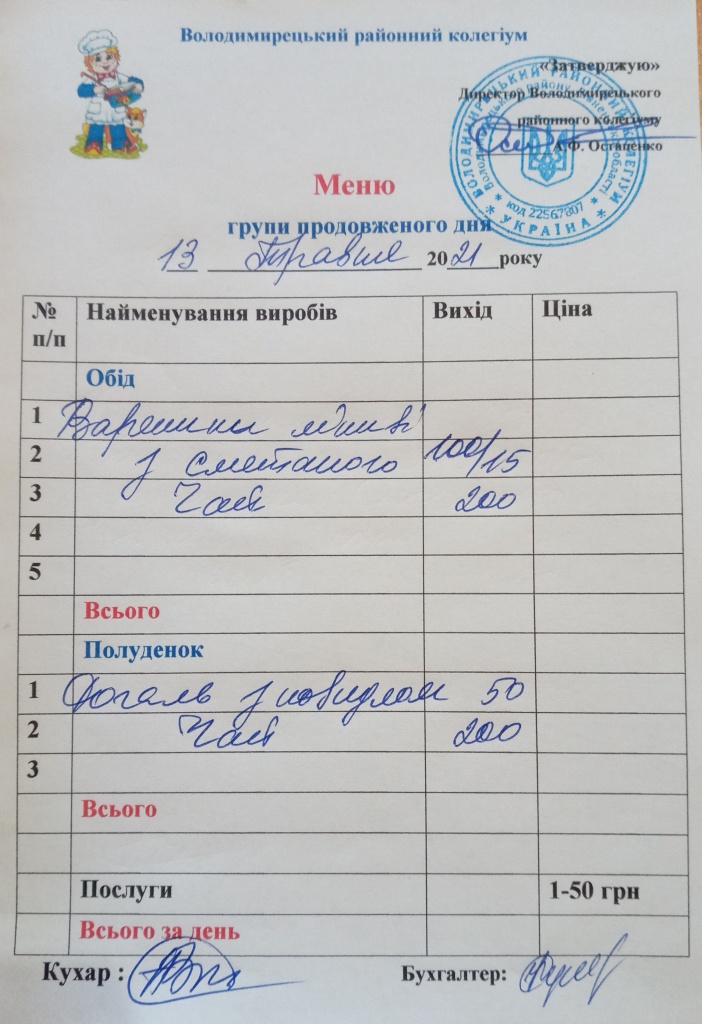 Володимирецький районний колегіум
«Затверджую»
Директор Володимирецького
районного колегіуму
А.Ф. Остапенко
ВОЛОДИМИРЕЦЬКИЙ РАЙОННИЙ КОЛЕГІУМ
код 22567807
УКРАЇНА
Меню
групи продовженого дня
13 травня 2021 року
№ п/п Найменування виробів Вихід Ціна
Обід
1 Вареники ліниві
2 з сметаною 100/15
3 Чай 200
4
5
Всього
Полуденок
1 Рогаль з повидлом 50
2 Чай 200
3
Всього
Послуги 1-50 грн
Всього за день
Кухар : Бухгалтер: